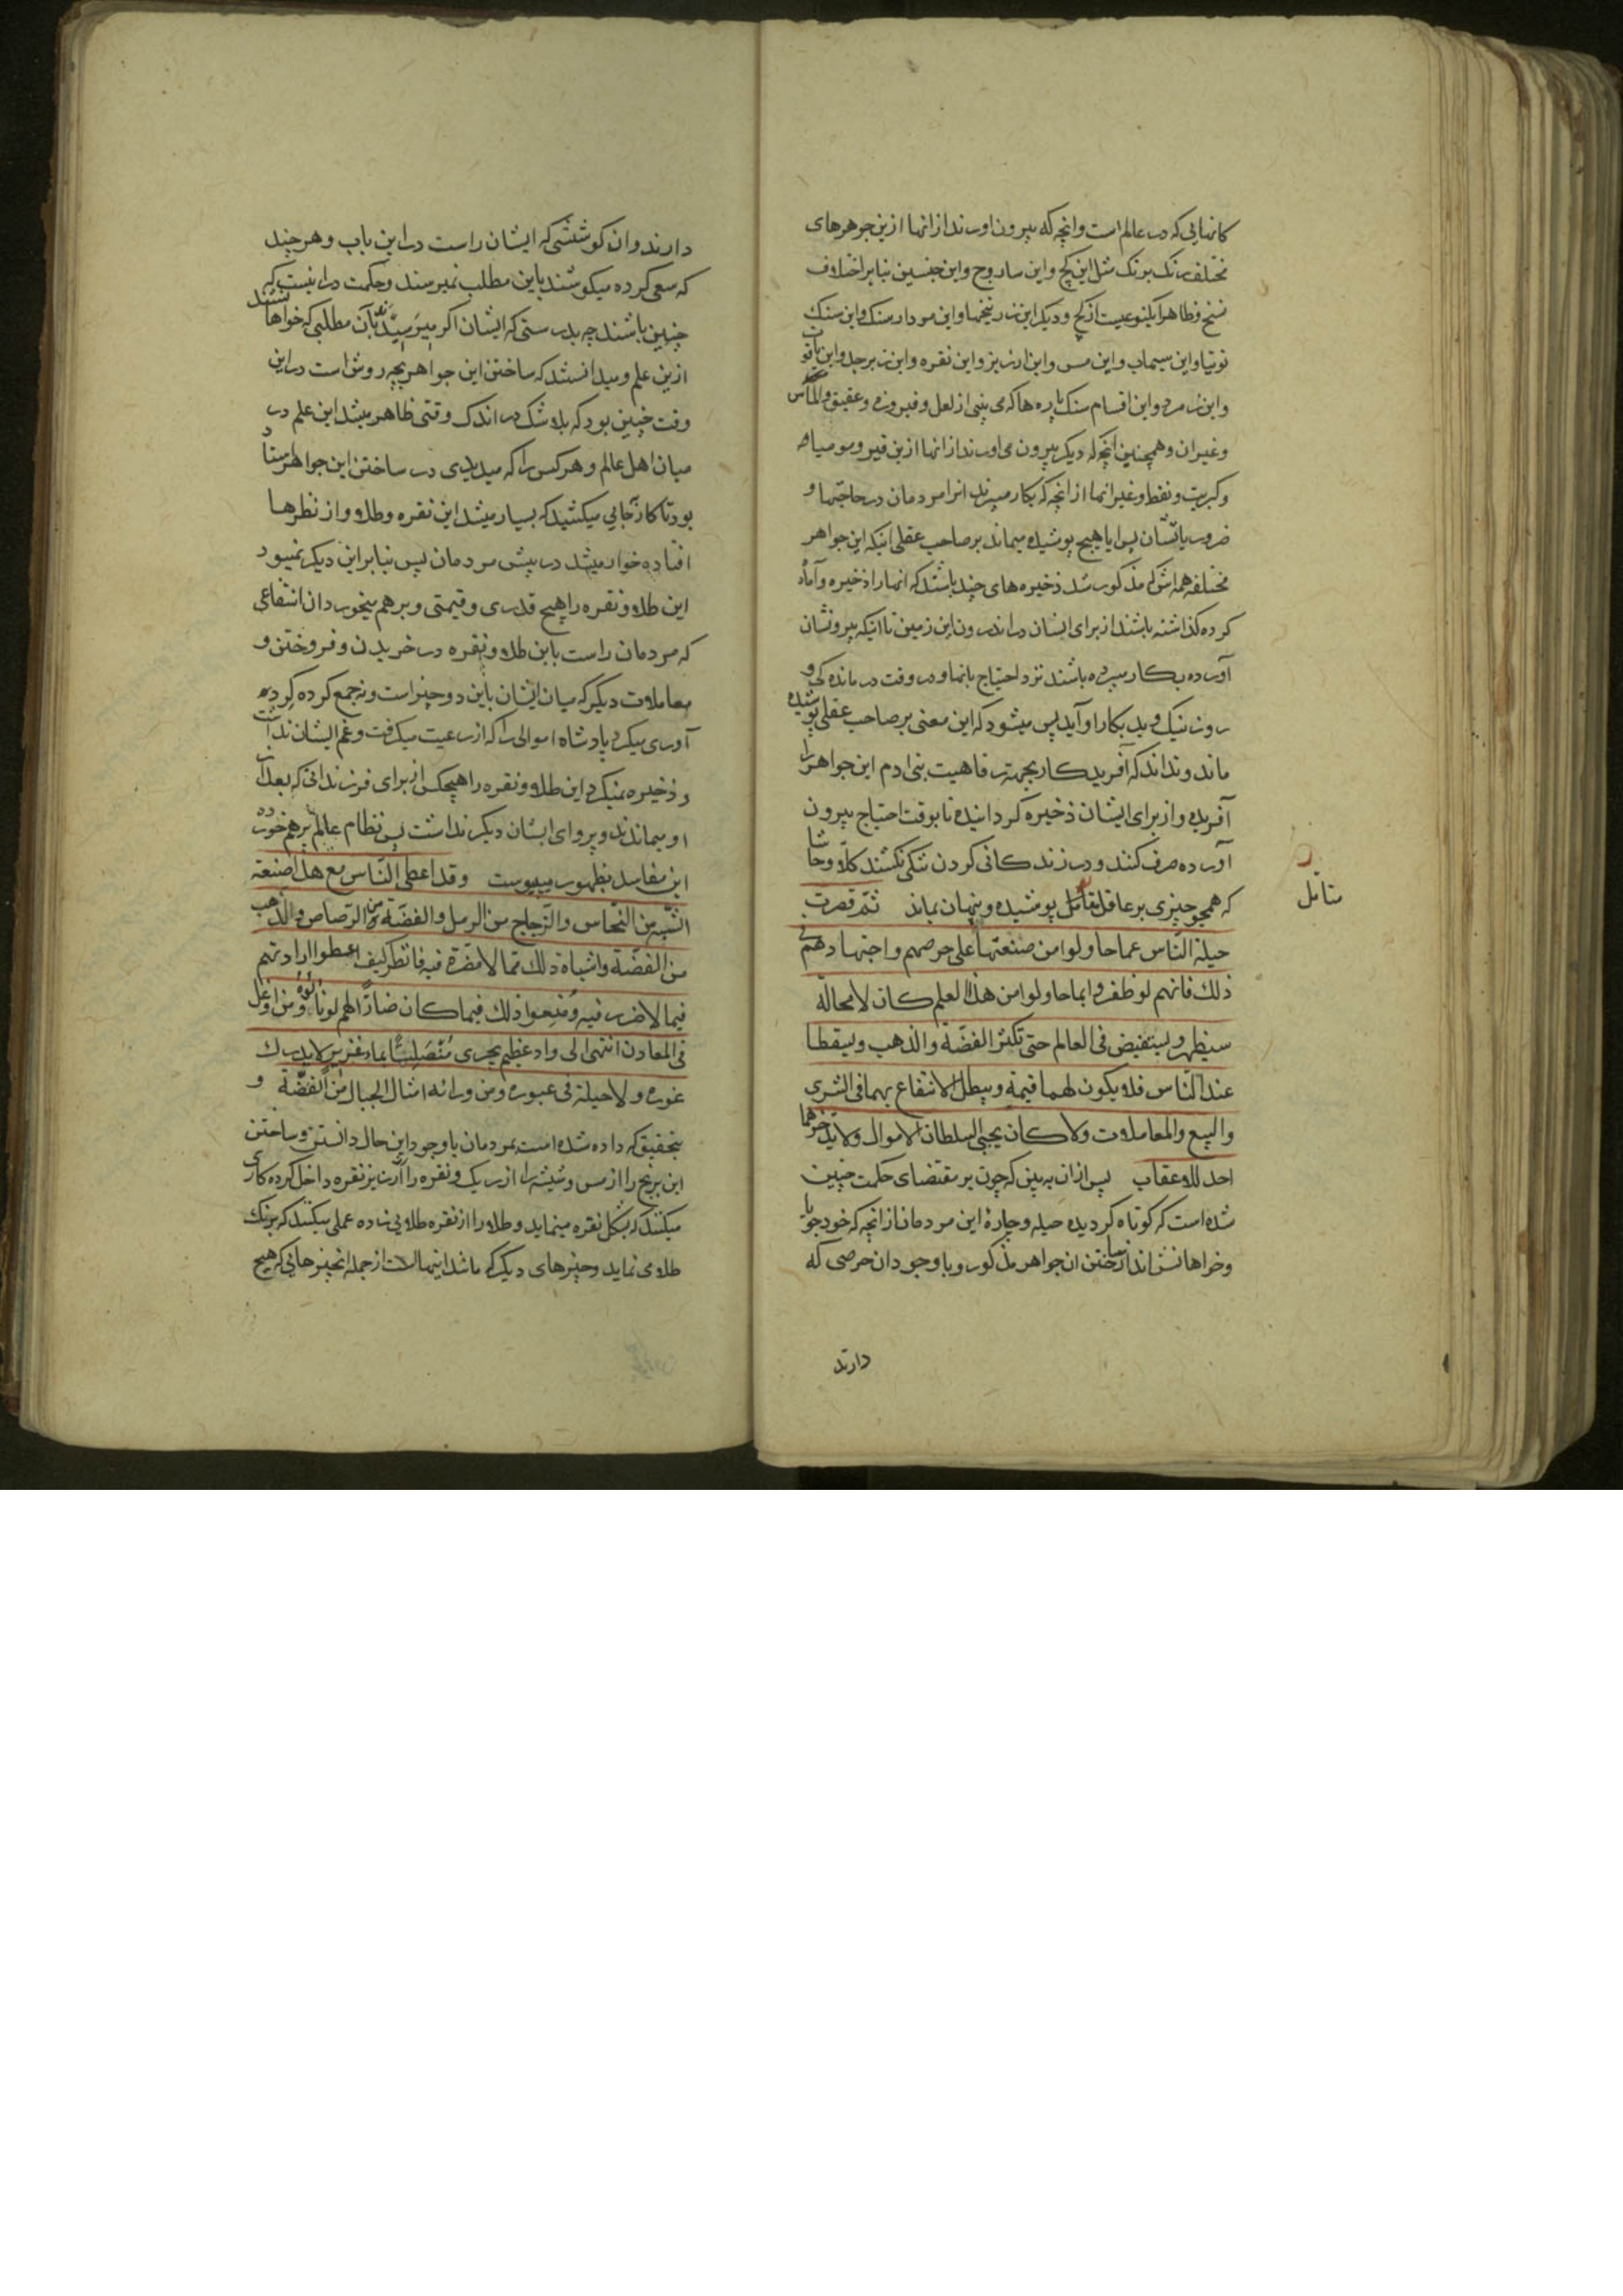 کانهایی که در عالم است وانچه که بیرون اورند از انها ازین جوهرهای
مختلف رنک برنک مثل این کچ واین ساروج واین جنسین بنابر اختلاف
نسخ وظاهرا یکنوعیست از کچ ودیکر این زرنیخها واین مردار سنک واین سنک
توتیا واین سیماب واین مس واین ارزیز واین نقره واین زبرجد واین یاقوت
واین زمرد واین اقسام سنک پاره ها که می بینی از لعل وفیروزه وعقیق والماس
وغیران وهمچنین انچه که دیکر بیرون می اورند از انها ازین قیر ومومیا
وکبریت ونفط وغیر انها از انچه که بکار میبرند انرا مردمان در حاجتها و
ضروریاتشان پس ایا هیچ پوشیده میماند بر صاحب عقلی اینکه این جواهر
مختلفه همه اش که مذکور شد ذخیره های چند باشند که انها را ذخیره وآماده
کرده کذاشته باشند از برای ایشان در اندرون این زمین تا اینکه بیرونشان
آورده بکار میبرده باشند نزد احتیاج بانها ودر وقت درمانده کی و
روز نیک وبد بکار او آید پس میشود که این معنی بر صاحب عقلی پوشیده
ماند ونداند که آفریدکار بجهت رفاهیت بنی ادم این جواهر را
آفریده واز برای ایشان ذخیره کردانیده تا بوقت احتیاج بیرون
آورده صرف کنند ودر زندکانی کردن تنکی نکشند کلّا وحاشا
که همچو چیزی بر عاقل پوشیده وپنهان بماند ثمّ قصرت
متأمل
حیلة النّاس عما حاولوا من صنعتها علی حرصهم واجتهادهم فی
ذلك فانهم لو ظفروا بما حاولوا من هذا العلم کان لا محالة
سیظهر ویستفیض فی العالم حتی تکثر الفضّة والذهب ویسقطا
عند النّاس فلا یکون لهما قیمة ویبطل الانتفاع بهما فی الشری
والبیع والمعاملات ولا کان یجبی السلطان الاموال ولا یدخرهما
احد للاعقاب پس از ان به بین که چون بر مقتضای حکمت چنین
شده است که کوتاه کردیده حیله وچارۀ این مردمان از انچه که خود جویا
وخواهانش اند از ساختن ان جواهر مذکور وبا وجود ان حرصی که
دارند
دارند وان کوششی که ایشان راست در این باب وهر چند
که سعی کرده میکوشند باین مطلب نمیرسند وحکمت در اینست که
چنین باشند چه بدرستی که ایشان اکر میرسیدند بآن مطلبی که خواهانند
ازین علم ومیدانستند که ساختن این جواهر بچه روش است در این
وقت چنین بود که بلا شک در اندک وقتی ظاهر میشد این علم در
میان اهل عالم وهر کس را که میدیدی در ساختن این جواهر استاد
بود تا کار بجایی میکشید که بسیار میشد این نقره وطلا واز نظرها
افتاده خوار میشد در پیش مردمان پس بنابر این دیکر نمیبود
این طلا ونقره را هیچ قدری وقیمتی وبر هم میخورد ان انتفاعی
که مردمان راست باین طلا ونقره در خریدن وفروختن و
معاملات دیکر که میان ایشان باین دو چیز است ونه جمع کرده کرد
آوری میکرد پادشاه اموالی را که از رعیت میکرفت وغم ایشان نداشت
وذخیره نمیکرد این طلا ونقره را هیچکس از برای فرزندانی که بعد از
او میماندند وپروای ایشان دیکر نداشت پس نظام عالم بر هم خورده
این مفاسد بظهور میپیوست وقد اعطی النّاس مع هذا صنعة
الشّبه من النّحاس والزّجاج من الرمل والفضّة من الرّصاص والذّهب
من الفضّة واشباه ذلك ممّا لا مضرّة فیه فانظر کیف اعطوا ارادتهم
فیما لا ضرر فیه ومُنِعوا ذلك فیما کان ضارّا لهم لو نالوه ومن اوغل
فی المعادن انتهی الی واد عظیم یجری مُنْصَلِتًا بماء غزیر لا یدرك
غوره ولا حیلة فی عبوره ومن ورائه امثال الجبال من الفضّة و
بتحقیق که داده شده است بمردمان با وجود این حال دانستن وساختن
این برنج را از مس وشیشه را از ریک ونقره را از ارزیز نقره داخل کرده کاری
میکنند که بشکل نقره مینماید وطلا را از نقره طلایی زاده عملی میکنند که برنک
طلا می نماید وچیزهای دیکر که ماننند اینهاست از جمله انچیزهایی که هیچ